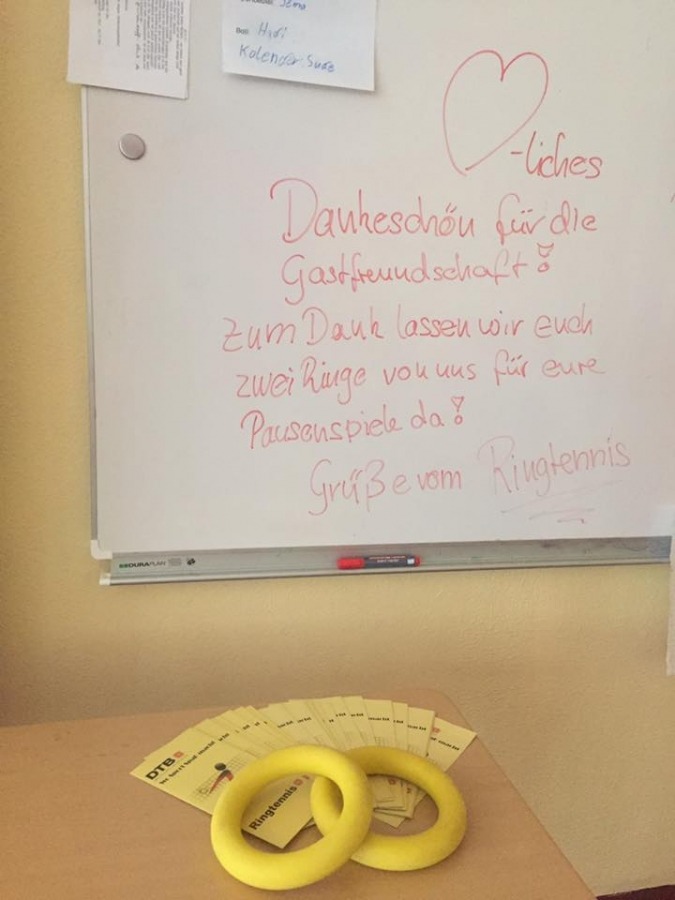 Kalender
-liches
Dankeschön für die
Gastfreundschaft!
Zum Dank lassen wir euch
zwei Ringe von uns für eure
Pausenspiele da!
Grüße vom Ringtennis
DURAPLAN
DTB
Ringtennis